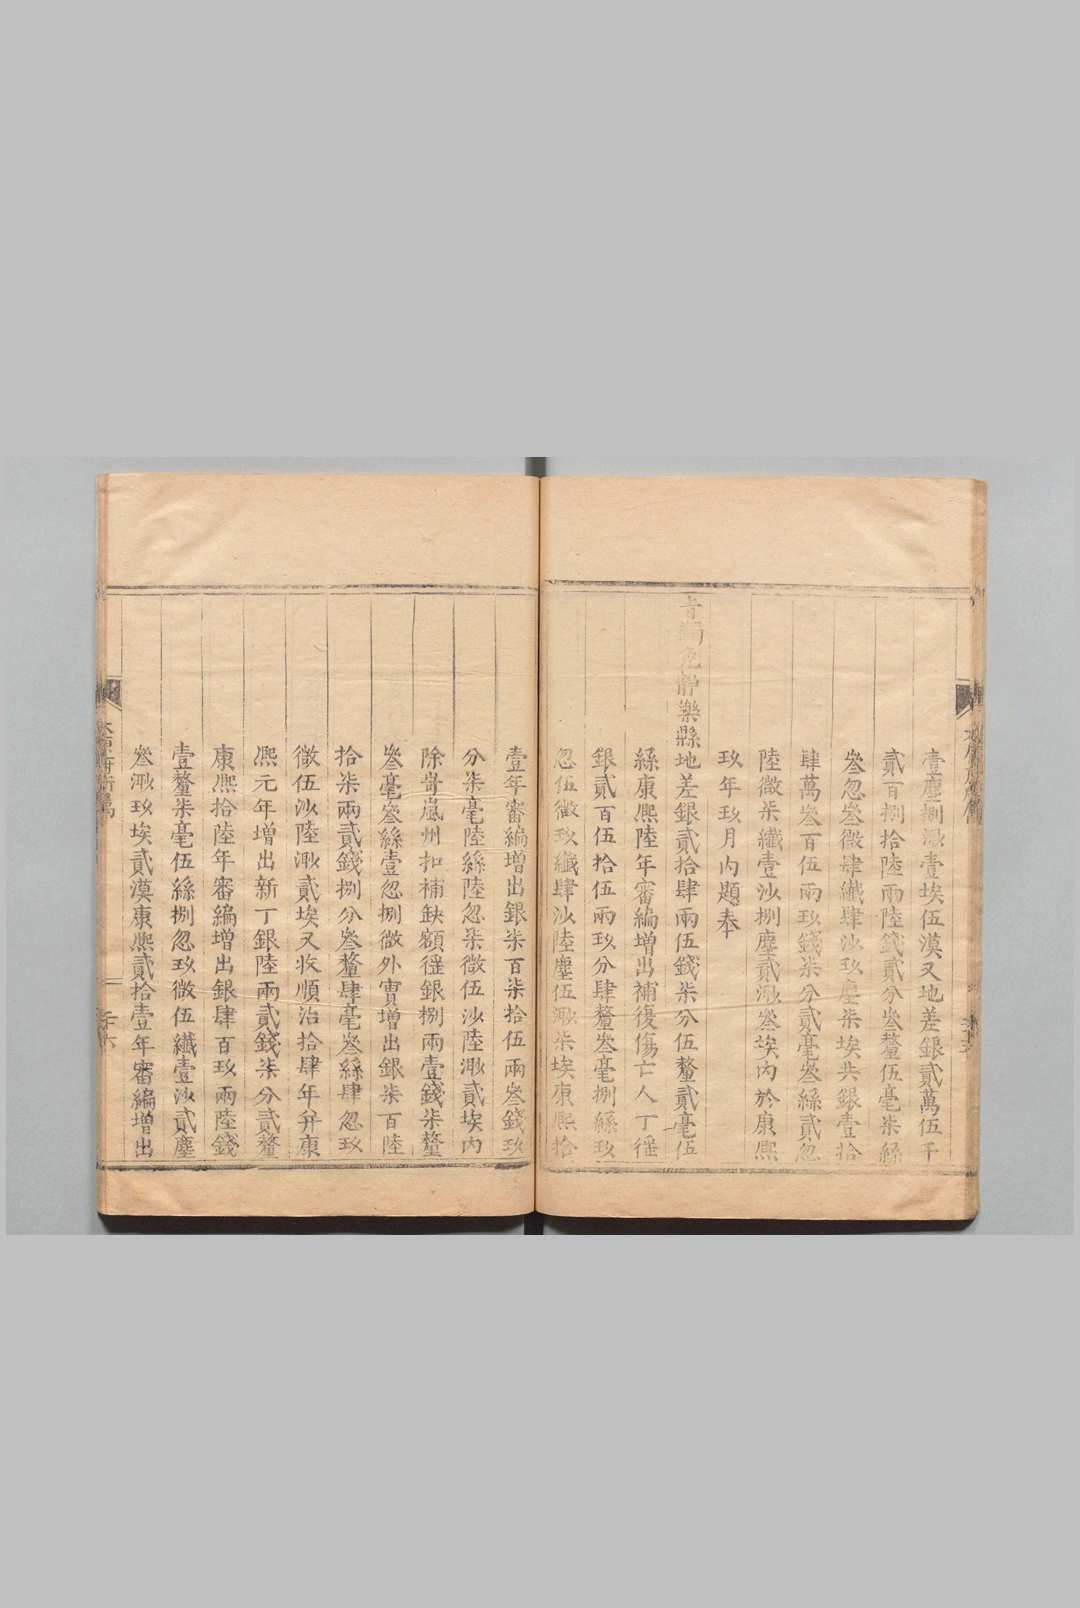 壹塵捌渺壹埃伍漠又地差銀貳萬伍千
貳百捌拾陸兩陸錢貳分叅釐伍毫柒絲
叅忽叅微肆纖肆沙玖塵柒埃共銀壹拾
肆萬叅百伍兩玖錢柒分貳毫叅絲貳忽
陸微柒纖壹沙捌塵貳渺叅埃內於康熙
玖年玖月內題奉
免靜樂縣地差銀貳拾肆兩伍錢柒分伍釐貳毫伍
絲康熙陸年審編增出補復傷亡人丁徭
銀貳百伍拾伍兩玖分肆釐叅毫捌絲玖
忽伍微玖纖肆沙陸塵伍渺柒埃康熙拾
壹年審編增出銀柒百柒拾伍兩叅錢玖
分柒毫陸絲陸忽柒微伍沙陸渺貳埃內
除岢嵐州扣補缺額徭銀捌兩壹錢柒釐
叅毫叅絲壹忽捌微外實增出銀柒百陸
拾柒兩貳錢捌分叅釐肆毫叅絲肆忽玖
微伍沙陸渺貳埃又收順治拾肆年幷康
熙元年增出新丁銀陸兩貳錢柒分貳釐
康熙拾陸年審編增出銀肆百玖兩陸錢
壹釐柒毫伍絲捌忽玖微伍纖壹沙貳塵
叅渺玖埃貳漠康熙貳拾壹年審編增出